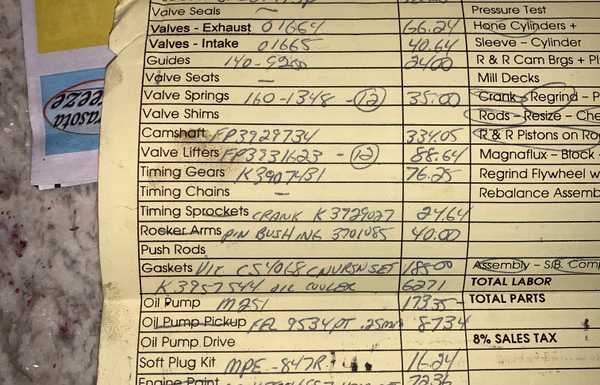 Valve Seals — Pressure Test
Valves - Exhaust 01664 66.24 Hone Cylinders +
Valves - Intake 01665 40.64 Sleeve - Cylinder
Guides 140-9200 24.00 R & R Cam Brgs + Pl
Valve Seats — Mill Decks
Valve Springs 160-1348 - 12 35.00 Crank - Regrind - P
Valve Shims Rods - Resize - Che
Camshaft FP3929734 334.05 R & R Pistons on Ro
Valve Lifters FP3931623 - 12 88.64 Magnaflux - Block -
Timing Gears K3907431 76.25 Regrind Flywheel w
Timing Chains — Rebalance Assemb
Timing Sprockets CRANK K3729027 24.64
Rocker Arms PIN BUSHING 3701085 40.00
Push Rods
Gaskets VIC CS4068 CNVRSN SET 185.00 Assembly - S.B. Com
K3957544 OIL COOLER 62.71 TOTAL LABOR
Oil Pump M251 173.35 TOTAL PARTS
Oil Pump Pickup FEL 9534PT .25mm 87.34
Oil Pump Drive 8% SALES TAX
Soft Plug Kit MPE-847R 16.24
Engine Paint 72.36
rasota
eeze